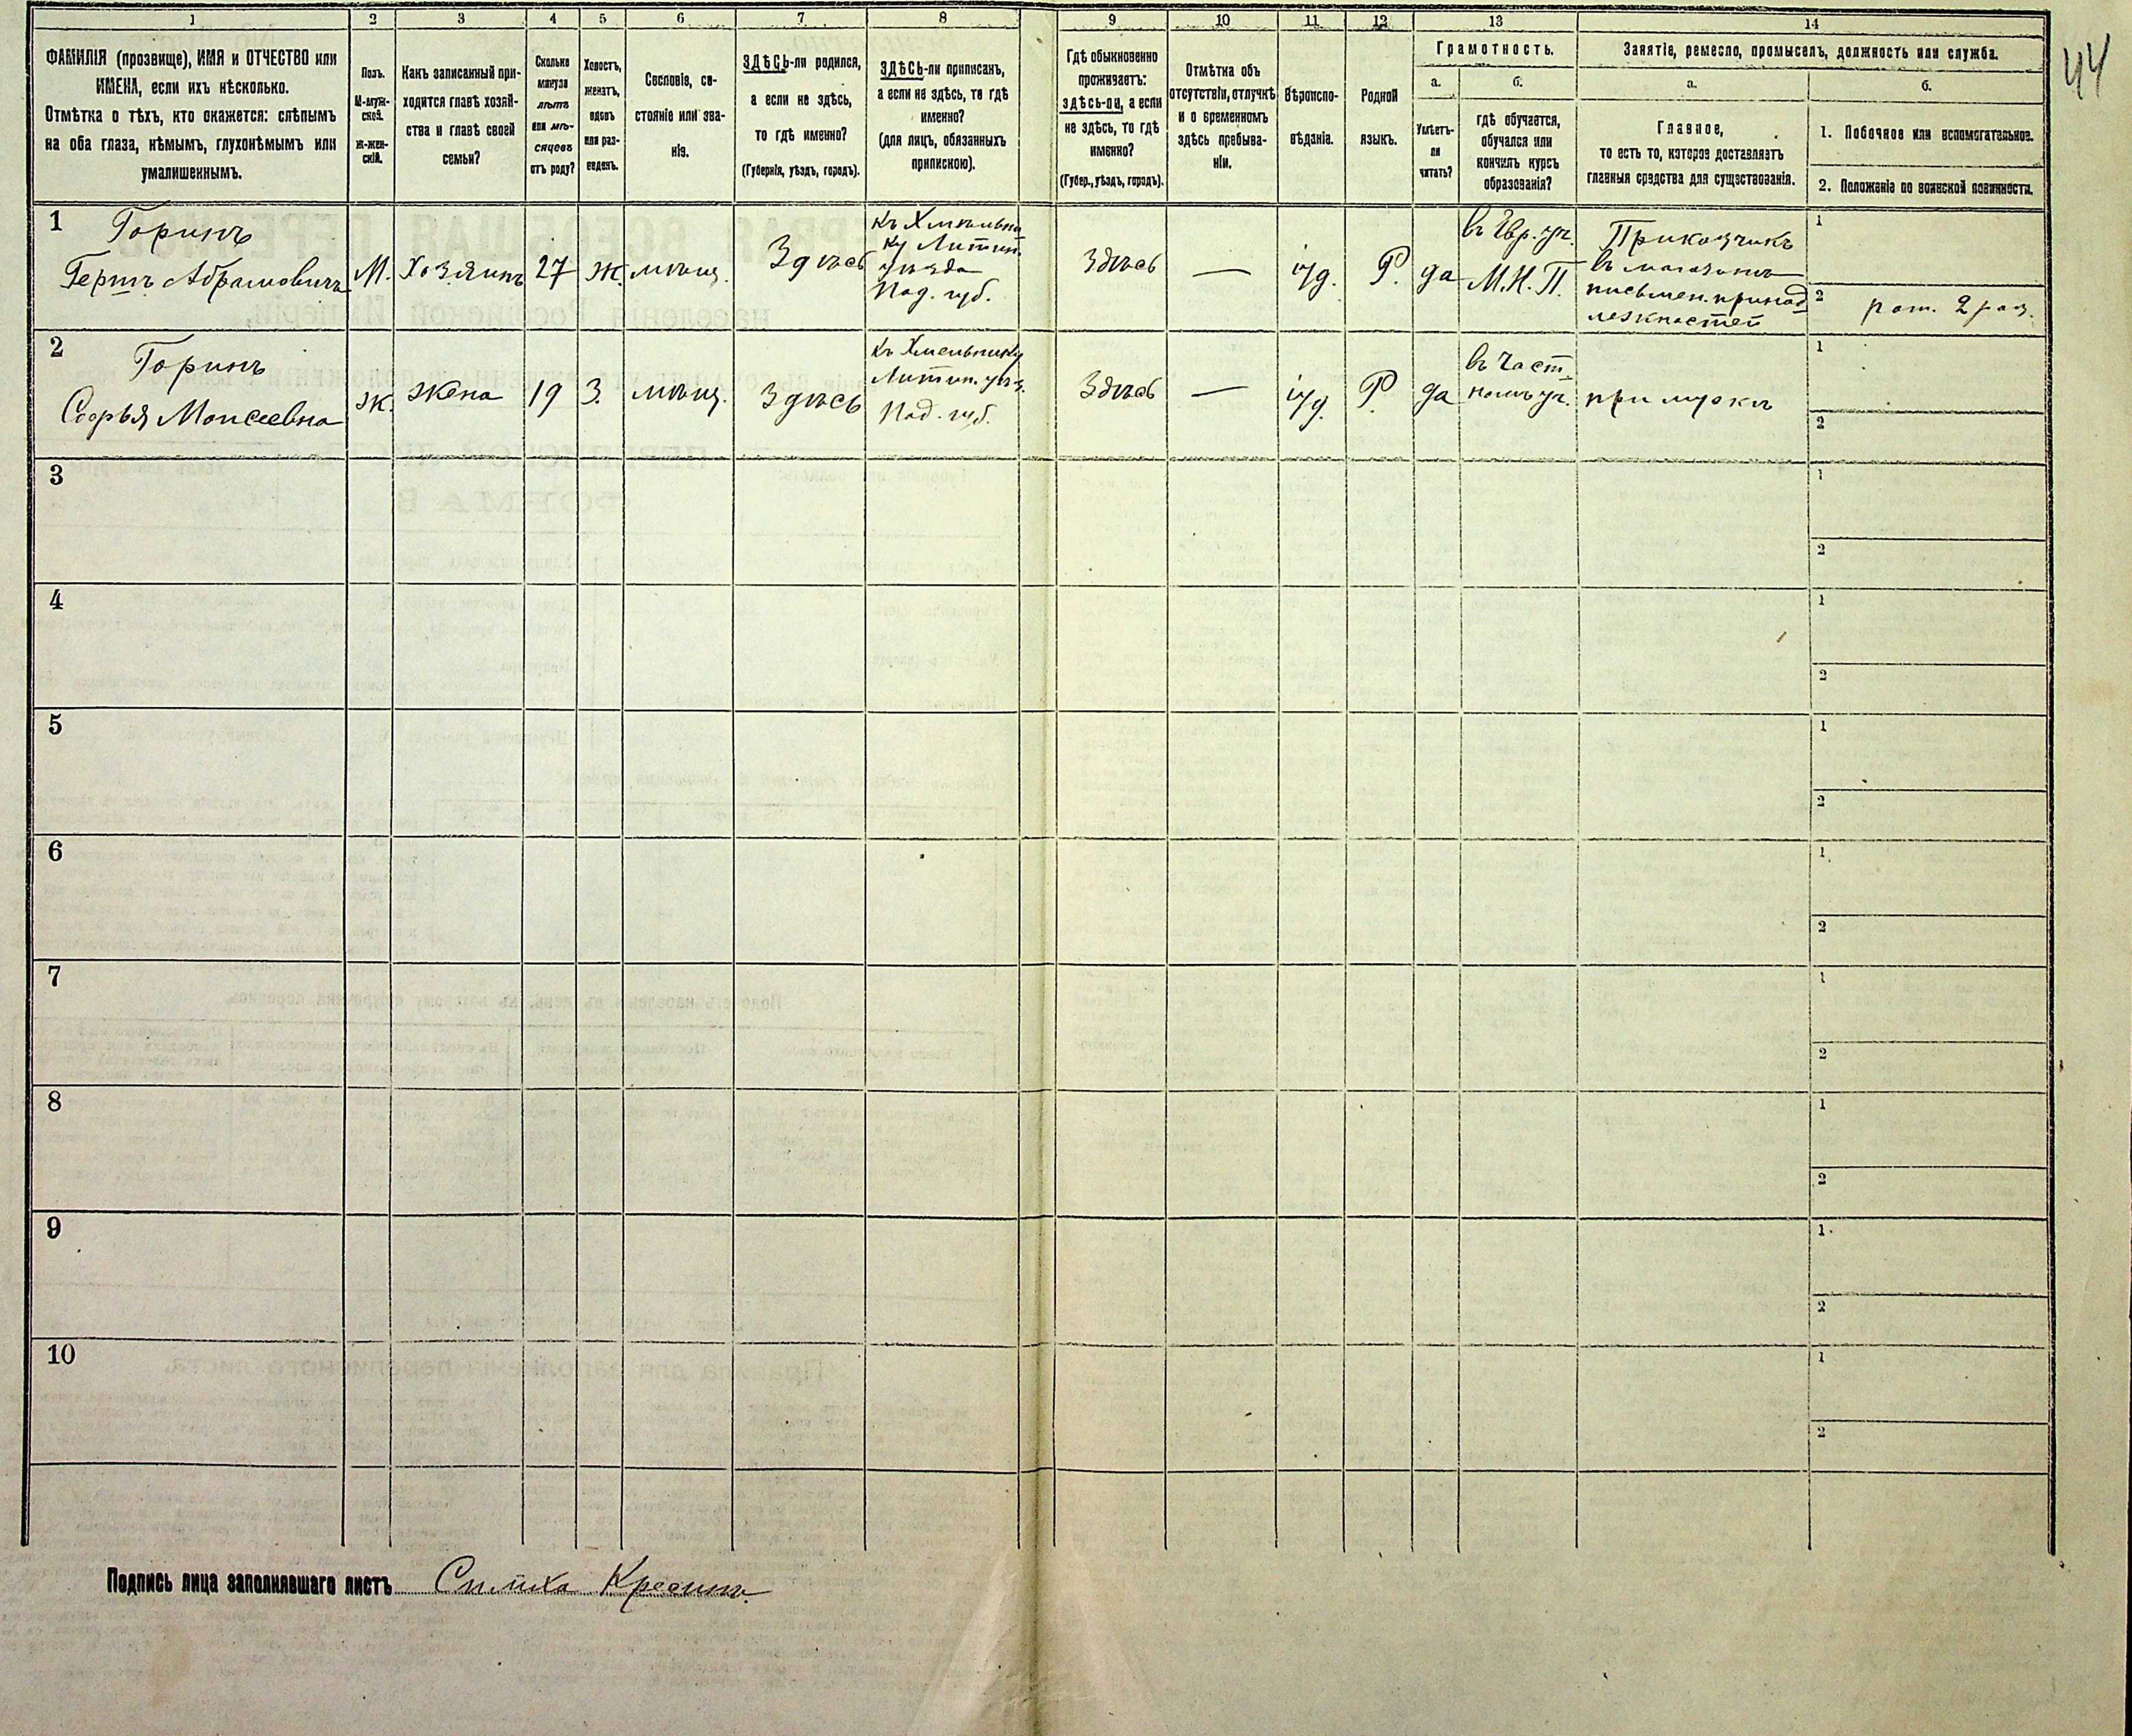 44
1 2 3 4 5 6 7 8 9 10 11 12 13 14
ФАМИЛІЯ (прозвище), ИМЯ и ОТЧЕСТВО или
ИМЕНА, если ихъ нѣсколько.
Отмѣтка о тѣхъ, кто окажется: слѣпымъ
на оба глаза, нѣмымъ, глухонѣмымъ или
умалишеннымъ.
Полъ.
М-муж-
ской.
Ж-жен-
скій.
Какъ записанный при-
ходится главѣ хозяй-
ства и главѣ своей
семьи?
Сколько
минуло
лѣтъ
или мѣ-
сяцевъ
отъ роду?
Холостъ,
женатъ,
вдовъ
или раз-
веденъ.
Сословіе, со-
стояніе или зва-
ніе.
ЗДѢСЬ-ли родился,
а если не здѣсь,
то гдѣ именно?
(Губернія, уѣздъ, городъ).
ЗДѢСЬ-ли приписанъ,
а если не здѣсь, то гдѣ
именно?
(для лицъ, обязанныхъ
припискою).
Гдѣ обыкновенно
проживаетъ:
здѣсь-ли, а если
не здѣсь, то гдѣ
именно?
(Губер., уѣздъ, городъ).
Отмѣтка объ
отсутствіи, отлучкѣ
и о временномъ
здѣсь пребыва-
ніи.
Вѣроиспо-
вѣданіе.
Родной
языкъ.
Грамотность.
а.
Умѣетъ-
ли
читать?
б.
гдѣ обучается,
обучался или
кончилъ курсъ
образованія?
Занятіе, ремесло, промыселъ, должность или служба.
а.
Главное,
то есть то, которое доставляетъ
главныя средства для существованія.
б.
1. Побочное или вспомогательное.
2. Положеніе по воинской повинности.
1
Горинъ
Гершъ Абрамовичъ
М.
Хозяинъ
27
Ж.
мѣщ.
Здѣсь
къ Хмѣльни
ку Литин.
уѣзда
Под. губ.
Здѣсь
—
іуд.
Р.
да
въ Евр. уч.
М.Н.П.
Приказчикъ
въ магазинѣ
письмен. принад
лежностей
1
2 рат. 2 раз.
2
Горинъ
Софья Моисеевна
Ж.
жена
19
З.
мѣщ.
Здѣсь
къ Хмельнику
Литин. уѣз.
Под. губ.
Здѣсь
—
іуд.
Р.
да
въ Част
номъ уч.
при мужѣ
1
2
3
1
2
4
1
2
5
1
2
6
1
2
7
1
2
8
1
2
9
1
2
10
1
2
Подпись лица заполнявшаго листъ